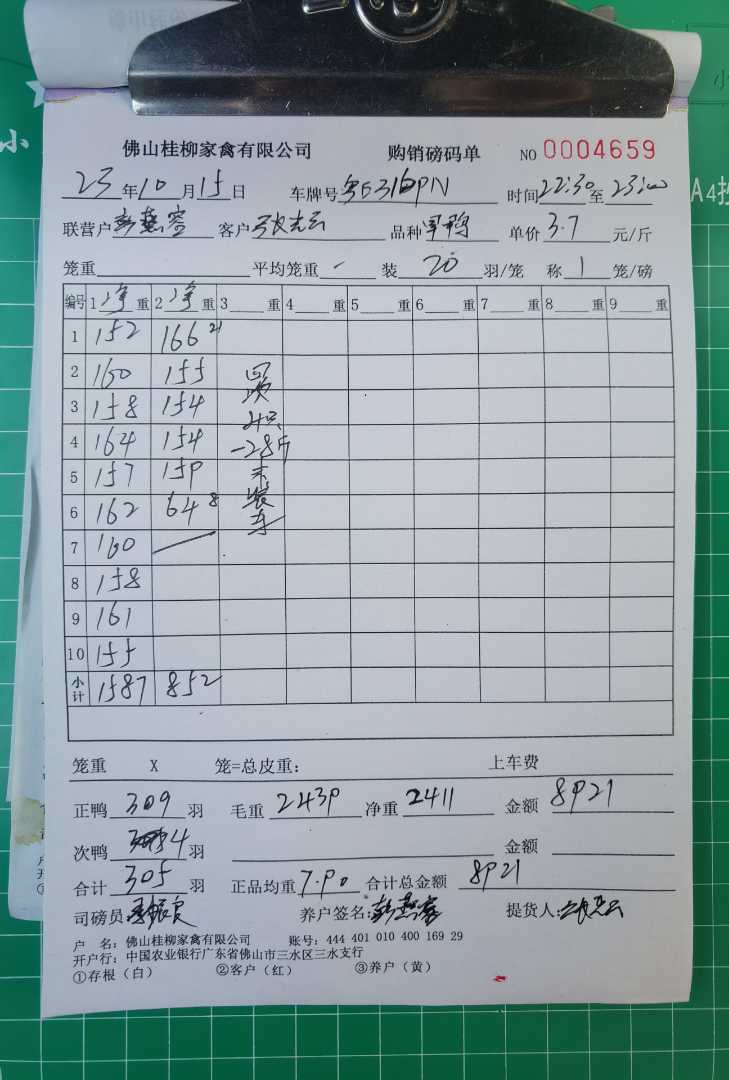 佛山桂柳家禽有限公司 购销磅码单 NO 0004659
23年10月15日 车牌号 粤E316PN 时间22:30至23:00
联营户 彭燕容 客户 张志云 品种 单价3.7元/斤
笼重 平均笼重 - 装20羽/笼 称1笼/磅
编号 1净重 2净重 3重 4重 5重 6重 7重 8重 9重
1 152 166 21
2 160 155 回
3 158 154 4只
4 164 154 -28斤
5 157 159 未
6 162 64 8 装车
7 160
8 158
9 161
10 155
小计 1587 852
笼重 X 笼=总皮重: 上车费
正鸭309羽 毛重2439 净重2411 金额8921
次鸭4羽 金额
合计305羽 正品均重7.90 合计总金额8921
司磅员: 养户签名:彭燕容 提货人:张志云
户 名: 佛山桂柳家禽有限公司 账号: 444 401 010 400 169 29
开户行: 中国农业银行广东省佛山市三水区三水支行
①存根（白） ②客户（红） ③养户（黄）
小
A4